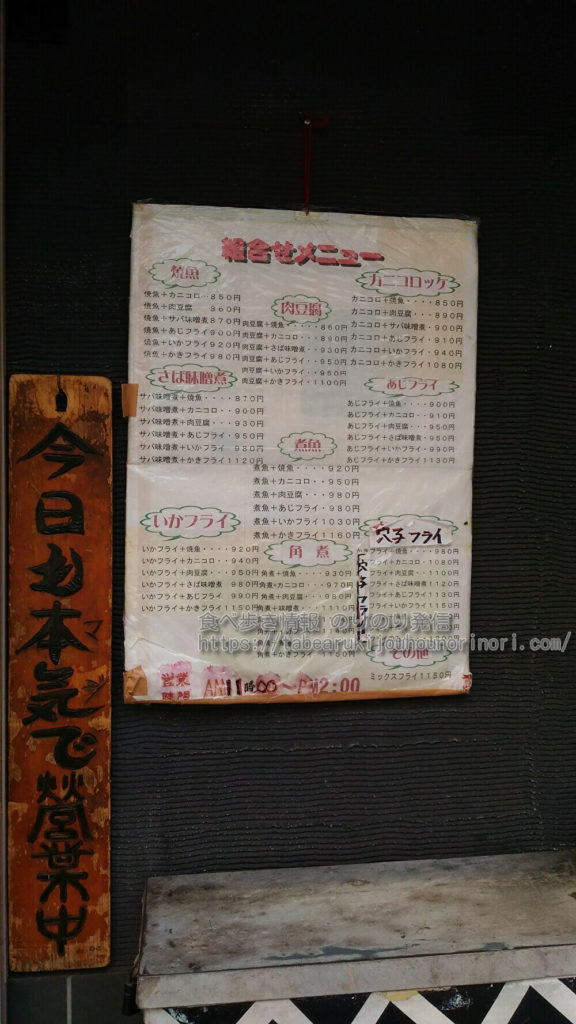 組合せメニュー
焼魚
焼魚＋カニコロ‥850円
焼魚＋肉豆腐　860円
焼魚＋サバ味噌煮870円
焼魚＋あじフライ900円
焼魚＋いかフライ920円
焼魚＋かきフライ980円
肉豆腐
肉豆腐＋焼魚・・・・860円
肉豆腐＋カニコロ・・890円
肉豆腐＋さば味噌煮・・930円
肉豆腐＋あじフライ・・950円
肉豆腐＋いかフライ・・950円
肉豆腐＋かきフライ・1100円
カニコロッケ
カニコロ＋焼魚・・・・850円
カニコロ＋肉豆腐・・・890円
カニコロ＋サバ味噌煮・900円
カニコロ＋あじフライ・910円
カニコロ＋いかフライ・940円
カニコロ＋かきフライ1080円
さば味噌煮
サバ味噌煮＋焼魚・・・・870円
サバ味噌煮＋カニコロ・・900円
サバ味噌煮＋肉豆腐・・・930円
サバ味噌煮＋あじフライ・950円
サバ味噌煮＋いかフライ・980円
サバ味噌煮＋かきフライ1120円
あじフライ
あじフライ＋焼魚・・・900円
あじフライ＋カニコロ・910円
あじフライ＋肉豆腐・・950円
あじフライ＋さば味噌煮・950円
あじフライ＋いかフライ・990円
あじフライ＋かきフライ・1130円
煮魚
煮魚＋焼魚・・・・920円
煮魚＋カニコロ・・950円
煮魚＋肉豆腐・・・980円
煮魚＋あじフライ・980円
煮魚＋いかフライ1030円
煮魚＋かきフライ1160円
いかフライ
いかフライ＋焼魚・・・・920円
いかフライ＋カニコロ・・940円
いかフライ＋肉豆腐・・・950円
いかフライ＋さば味噌煮・980円
いかフライ＋あじフライ　990円
いかフライ＋かきフライ1150円
角煮
角煮＋焼魚・・・・930円
角煮＋カニコロ・・・970円
角煮＋肉豆腐・・・980円
角煮＋味噌煮・・・1110円
角煮＋かきフライ
穴子フライ
かきフライ＋焼魚・・・980円
フライ＋カニコロ・・1080円
フライ＋肉豆腐・・・1100円
フライ＋さば味噌煮1120円
フライ＋あじフライ1130円
フライ＋いかフライ1150円
穴子フライ
その他
ミックスフライ1150円
営業時間　AM11時00〜PM2:00
今日も本気で営業中
マジ
食べ歩き情報 のりのり発信
https://tabearukijouhounorinori.com/